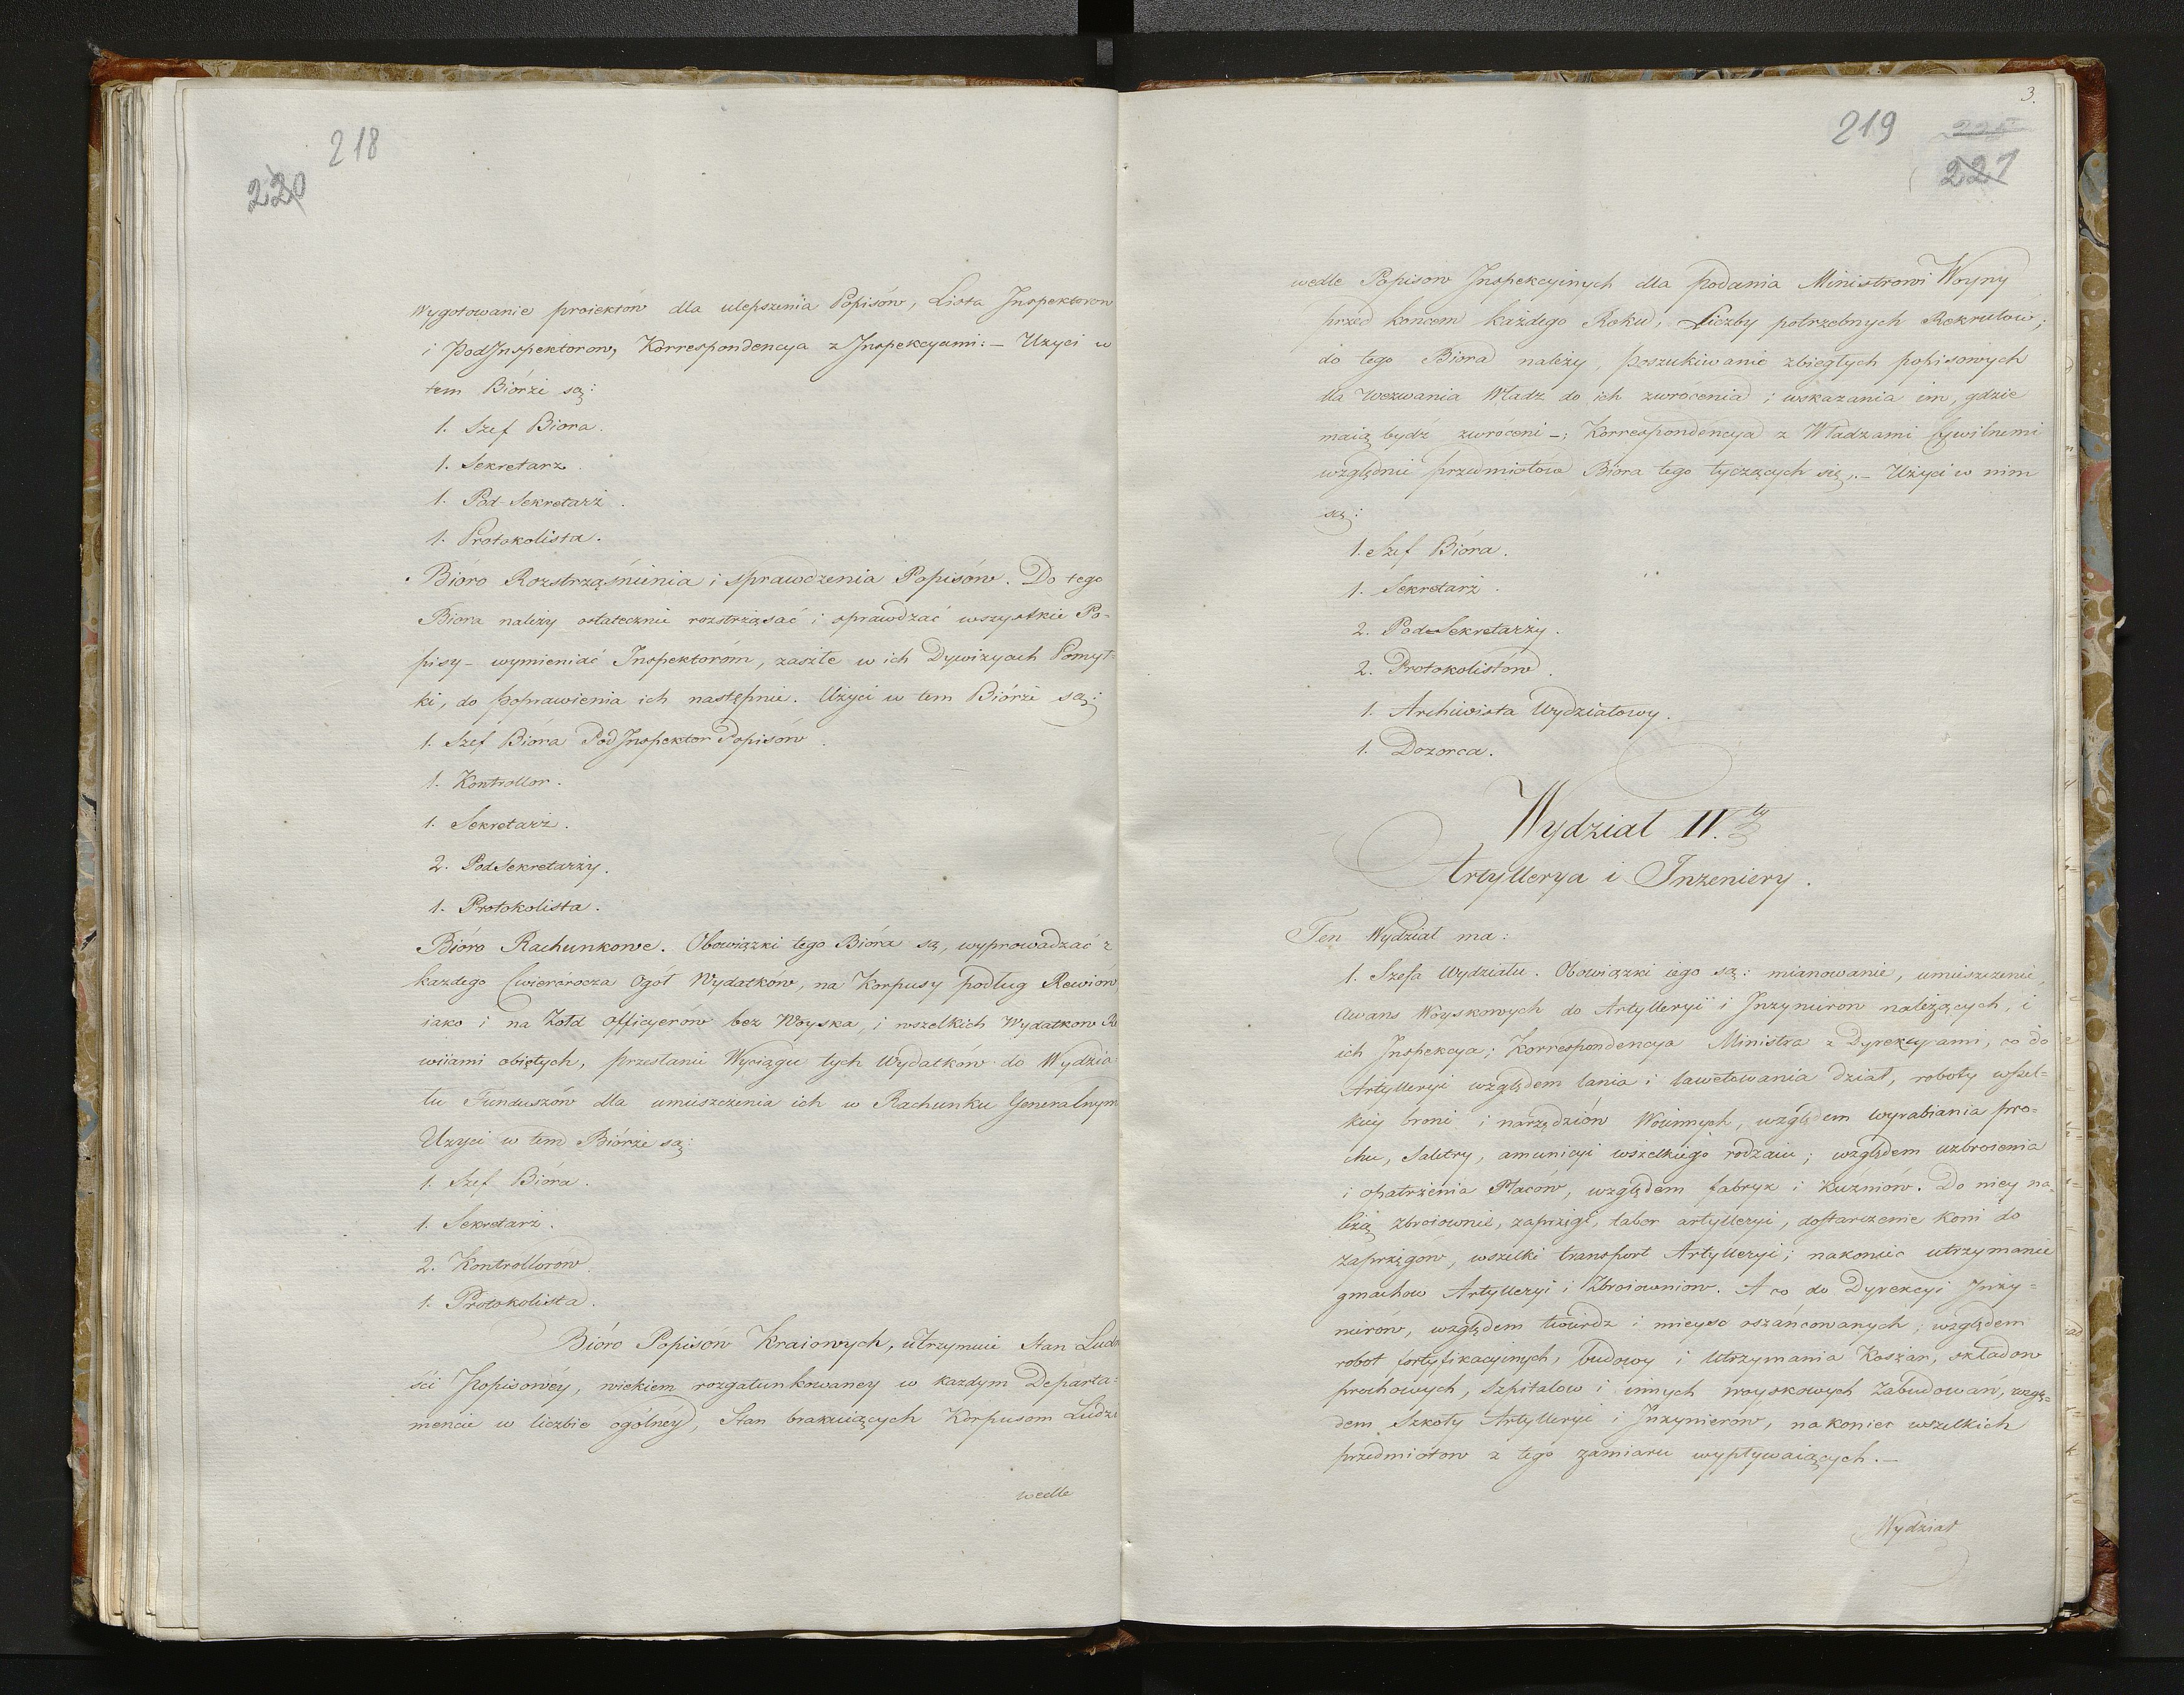 218
220
Wygotowanie proiektów dla ulepszenia Popisów, Lista Inspektorow
i PodInspektorow, Korrespondencya z Inspekcyami: – Użyci w
tem Biórze są:
1. Szef Biora.
1. Sekretarz.
1. Pod-Sekretarz.
1. Protokolista.
Bióro Rozstrząśnienia i sprawdzenia Popisów. Do tego
Biora należy ostatecznie rozstrząsać i sprawdzać wszystkie Po-
pisy – wymieniać Inspektoróm, zaszłe w ich Dywizyach Pomył=
ki, do poprawienia ich następnie. Użyci w tem Biórze są:
1. Szef Bióra PodInspektor Popisów.
1. Kontrollor.
1. Sekretarz.
2. PodSekretarzy.
1. Protokolista.
Bióro Rachunkowe. Obowiązki tego Bióra są, wyprowadzać z
każdego Cwierćrocza Ogół Wydatków, na Korpusy podług Rewiow
iako i na Żołd Officyerów bez Woyska, i wszelkich Wydatkow Re
wiiami obiętych, przesłanie Wyciągu tych Wydatków do Wydzia
łu Funduszów dla umieszczenia ich w Rachunku Generalnym
Użyci w tem Biórze są:
1. Szef Bióra.
1. Sekretarz.
2. Kontrollorów.
1. Protokolista.
Bióro Popisów Kraiowych, utrzymuie Stan Ludo
ści Popisowéy, wiekiem rozgatunkowaney w każdym Departa=
mencie w liczbie ogólnéy, Stan brakuiących Korpusom Ludzi
wedle
3.
219
225
221
wedle Popisow Inspekcyinych dla podania Ministrowi Woyny
przed końcem każdego Roku, Liczby potrzebnych Rekrutów;
do tego Biora należy, poszukiwanie zbiegłych popisowych
dla wezwania Władz do ich zwrócenia; wskazania im, gdzie
maią bydź zwróceni –; Korrespondencya z Władzami Cywilnemi
względnie przedmiotów Biora tego tyczących się. – Użyci w nim
są:
1. Szef Bióra.
1. Sekretarz.
2. Pod-Sekretarzy.
2. Protokolistów.
1. Archiwista Wydziałowy.
1. Dozorca.
Wydział II.ty
Artyllerya i Inżeniery.
Ten Wydział ma:
1. Szefa Wydziału. Obowiązki iego są: mianowanie, umieszczenie,
Awans Woyskowych do Artylleryi i Inżynierow należących, i
ich Inspekcya; Korrespondencya Ministra z Dyrekcyami, co do
Artylleryi względem lania i lawetowania dział, roboty wszel=
kiey broni i narzędziów Woiennych, względem wyrabiania pro=
chu, Saletry, amunicyi wszelkiego rodzaiu; względem uzbroienia
i opatrzenia Placów, względem fabryk i Kuźniów. Do niey na=
leżą zbroiownie, zaprzęgi, tabor artylleryi, dostarczenie koni do
zaprzęgow, wszelki transport Artylleryi; nakoniec utrzymanie
gmachow Artylleryi i Zbroiowniow. A co do Dyrekcyi Inży=
nierów, względem twierdz i mieysc oszańcowanych; względem
robot fortyfikacyinych, budowy i utrzymania Koszar, składow
prochowych, Szpitalow i innych woyskowych Zabudowań, wzglę=
dem Szkoły Artylleryi i Inżynierow, nakoniec wszelkich
przedmiotow z tego zamiaru wypływaiących. –
Wydział